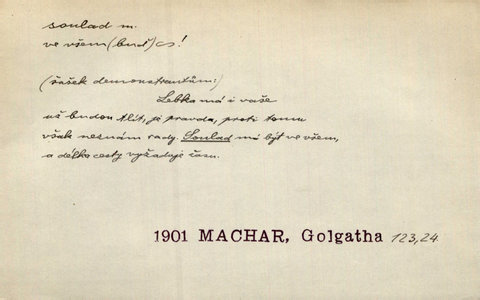 soulad m.
ve všem (buď) cs!
(šašek demonstrantům:)
Lebka má i vaše
už budou tlít, je pravda, proti tomu
však neznám rady. Soulad má být ve všem,
a délka cesty vyžaduje času.
1901 MACHAR, Golgatha 123,24